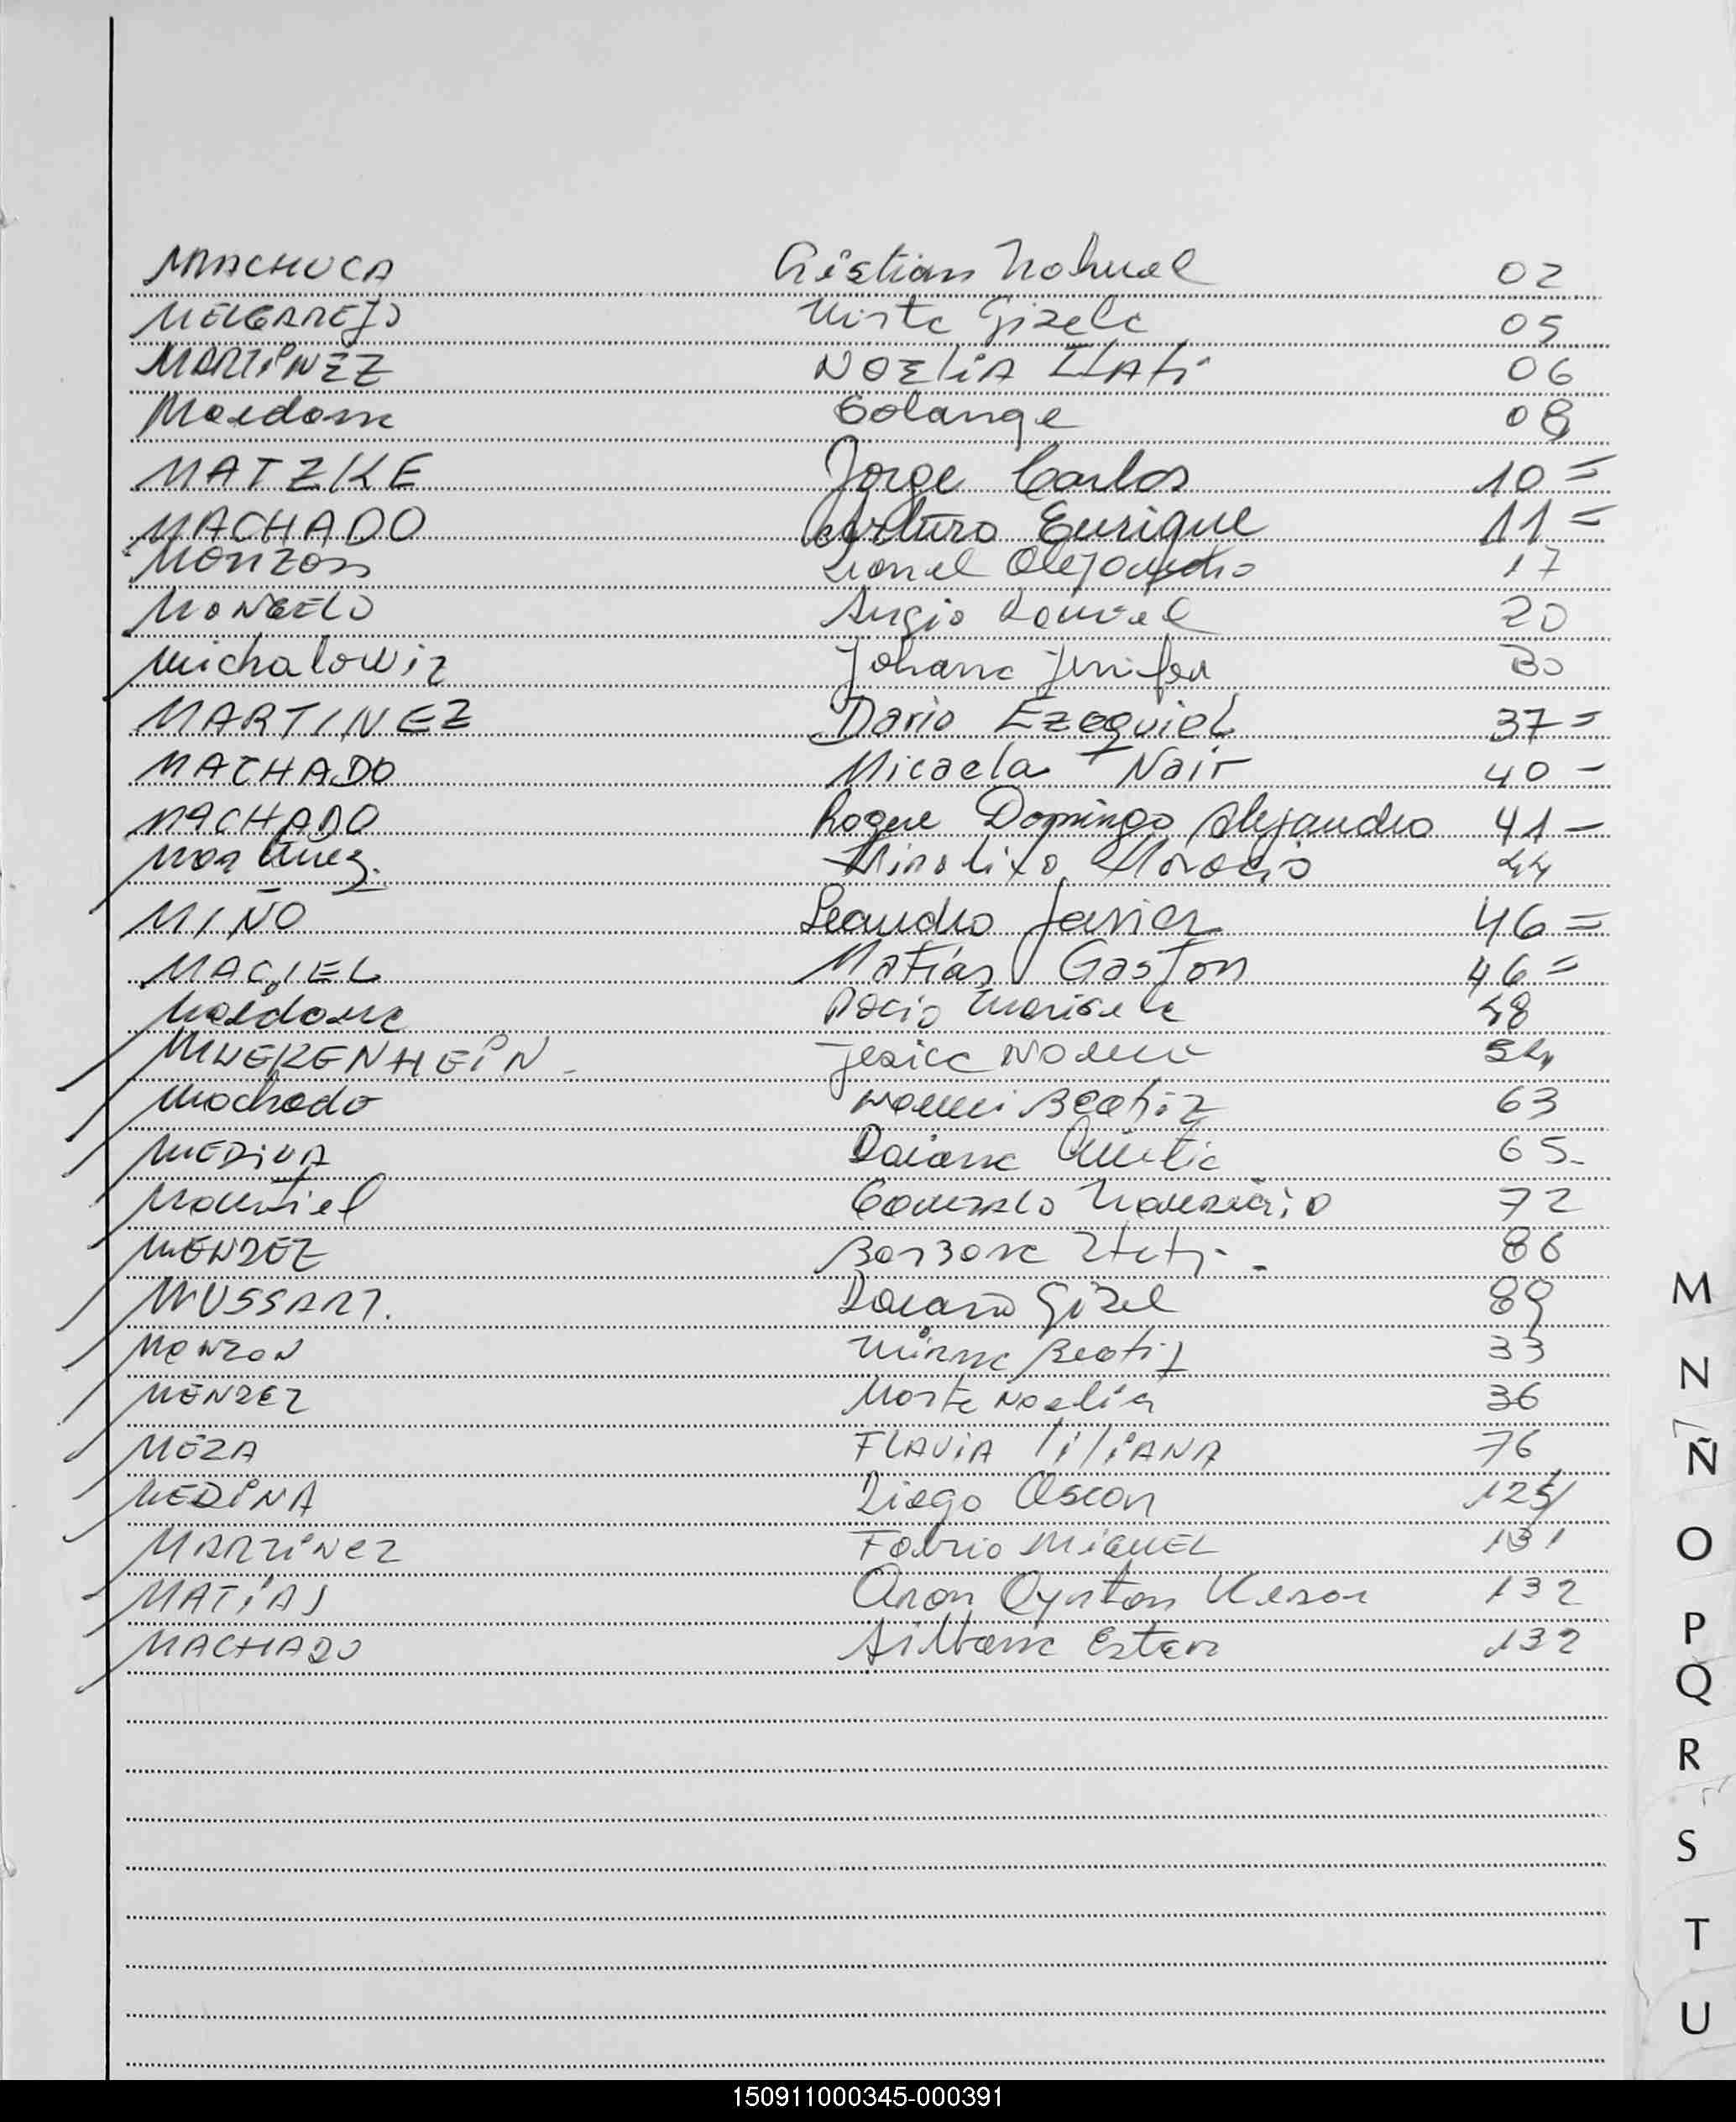 MACHUCA Cristian Nahuel 02
MELGAREJO Mirta Gisela 05
MARTiNEZ NOEliA ITATi 06
Maidana Solange 08
MATZKE Jorge Carlos 10=
MACHADO Arturo Enrique 11=
Monzon Lionel Alejandro 17
MONGELO Sergio Daniel 20
Michalowiz Johana Jenifer 30
MARTINEZ Dario Ezequiel 37=
MACHADO Micaela Nair 40-
MACHADO Roque Domingo Alejandro 41-
Martinez. Horacio 44
MIÑO Leandro Javier 46=
MACIEL Matías Gastón 46=
Maidana Rocio Marisela 48
Jesica 54
Machado Noemi Beatriz 63
MEDiNA Daiana 65-
Montiel Gonzalo Mauricio 72
MENDEZ Barbara Itati- 86
MUSSART. Daiana Gisel 89
MONZON Mirna Beatriz 33
MENDEZ Marta Noelia 36
MEZA FLAViA liliANA 76
MEDiNA Diego Oscar 125/
MARTiNez Fabrio MiGUEL 131
MATiAS Aron Ayrton 132
MACHADO Silvana Ester 132
M
N
Ñ
O
P
Q
R
S
T
U
150911000345-000391